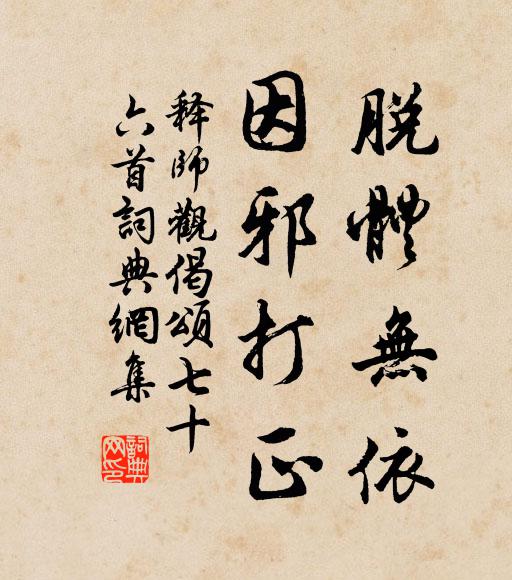 脫體無依
因邪打正
释師觀偈頌七十
六首詞典網集
詞典
网印